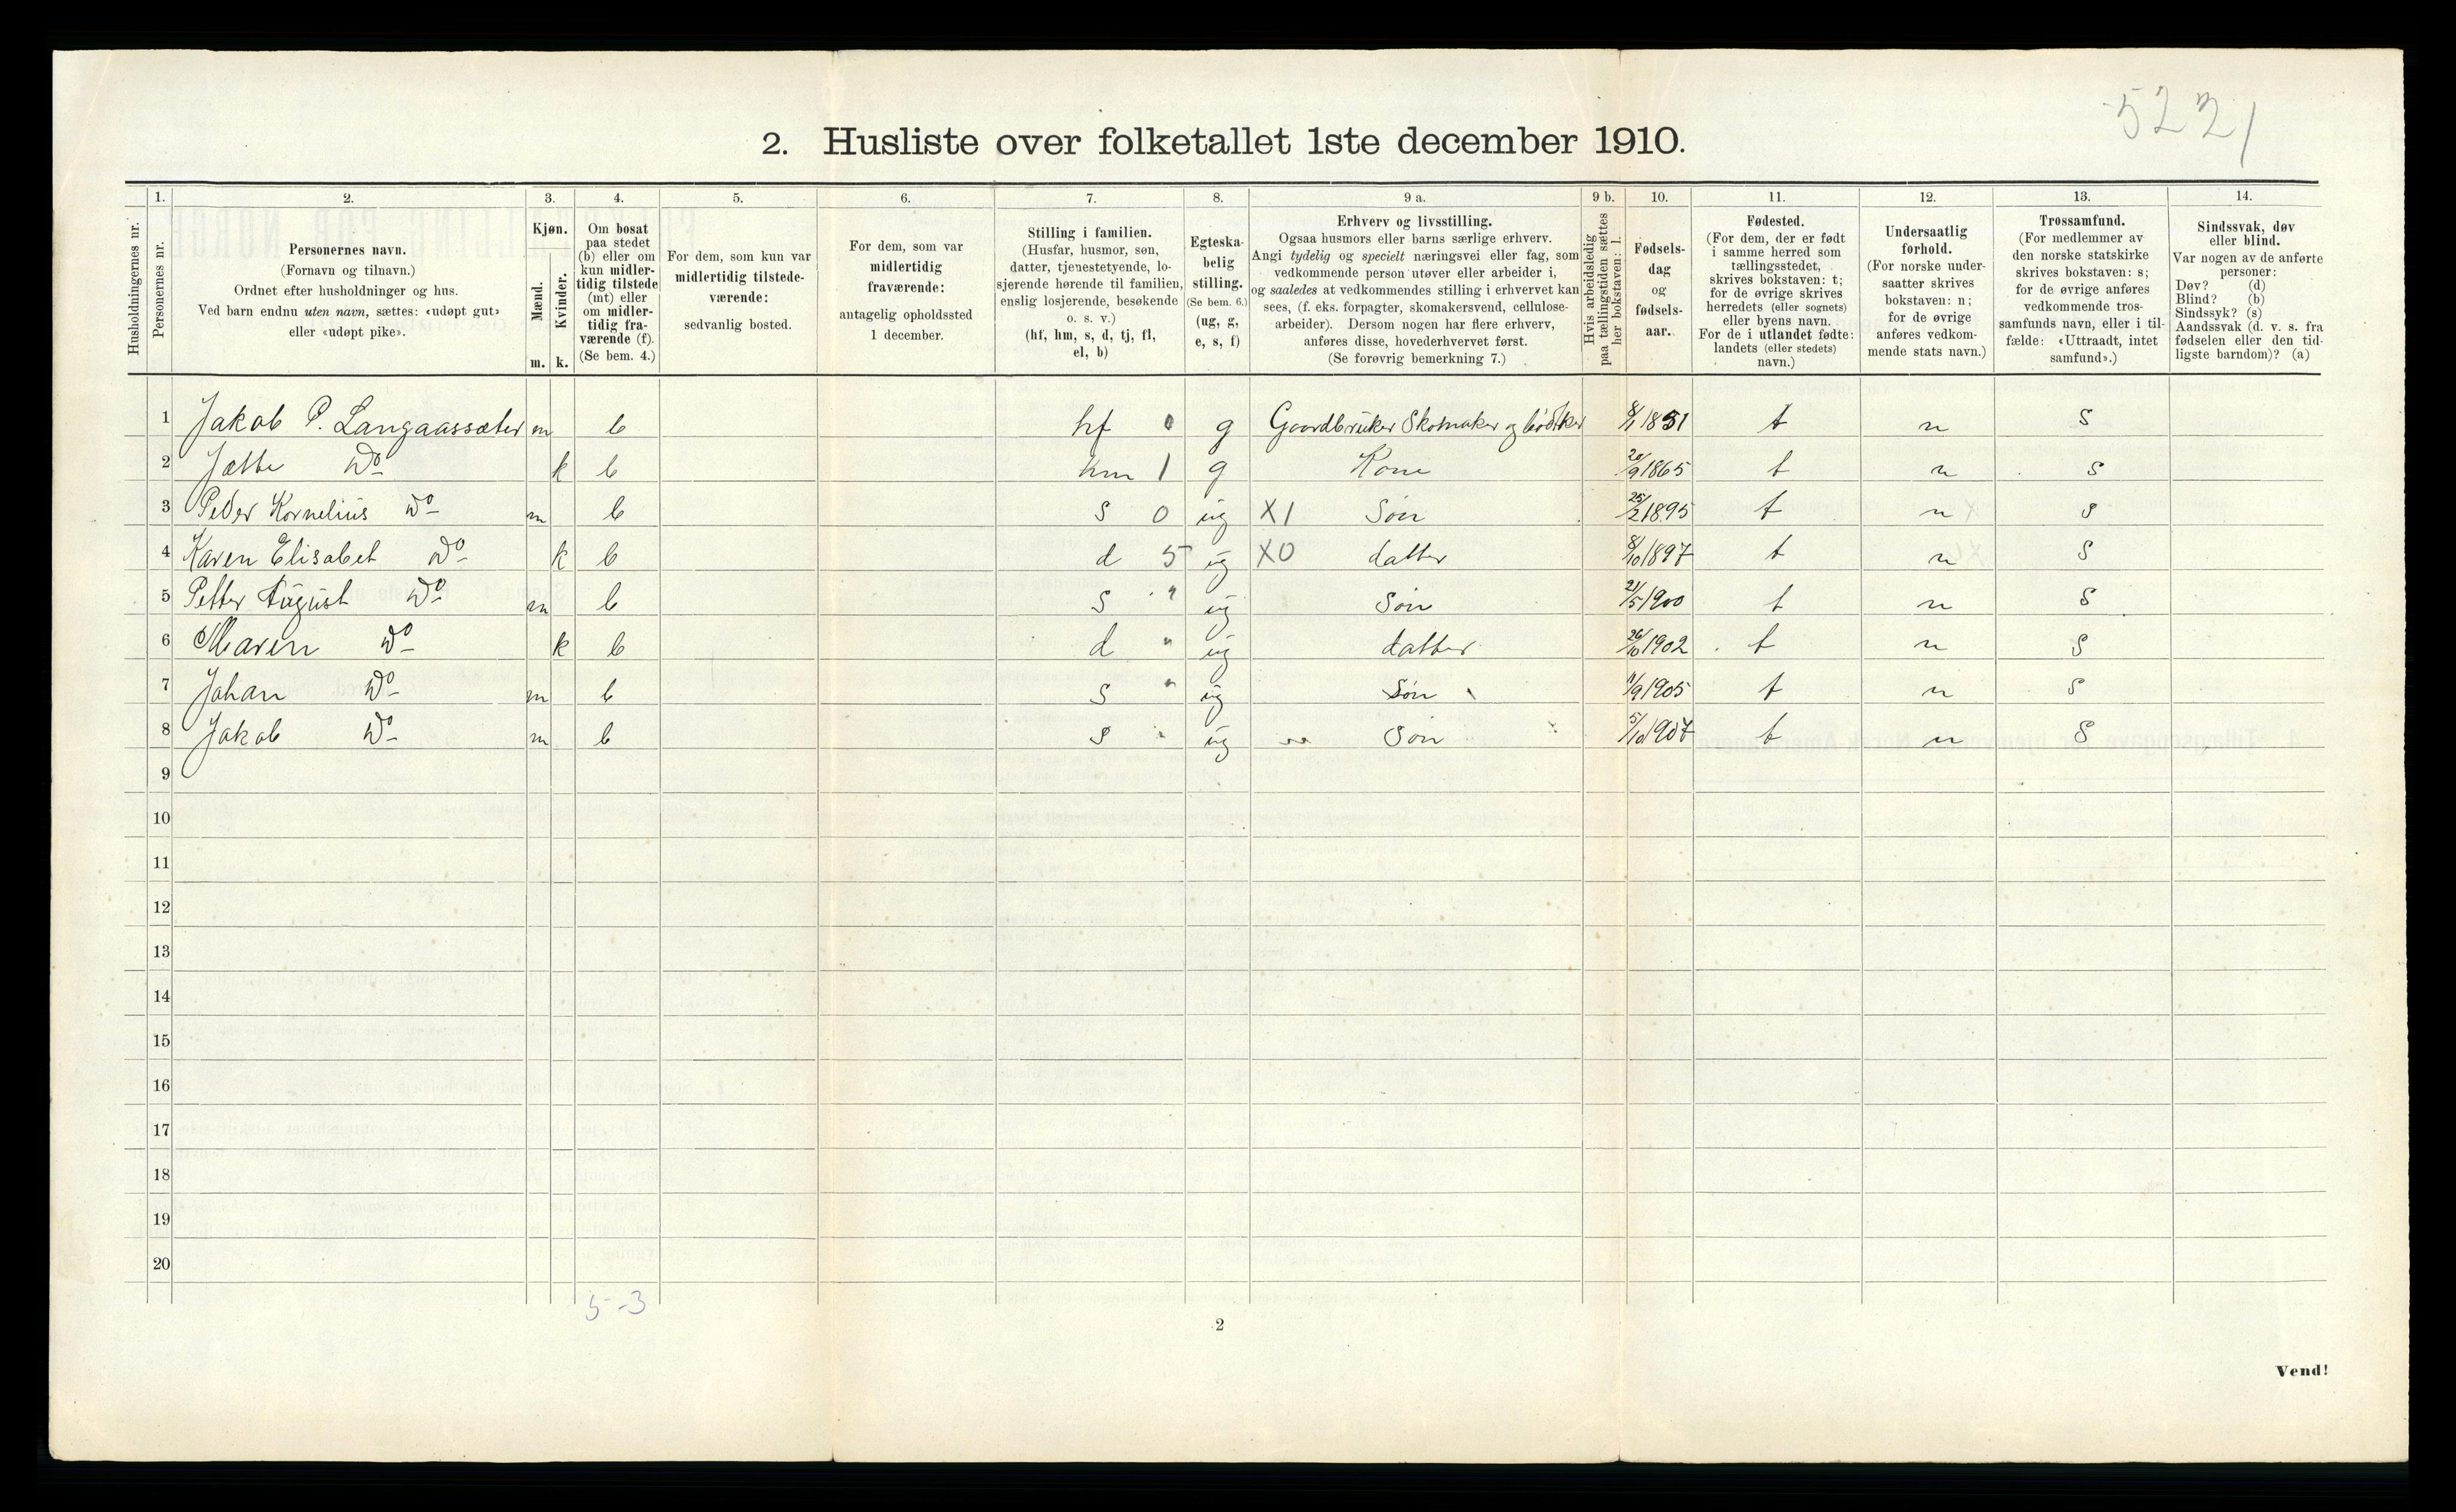 5221
2. Husliste over folketallet 1ste december 1910.
Husholdningernes nr.
1.
Personernes nr.
2.
Personernes navn.
(Fornavn og tilnavn.)
Ordnet efter husholdninger og hus.
Ved barn endnu uten navn, sættes: «udøpt gut»
eller «udøpt pike».
3.
Kjøn.
Mænd.
Kvinder.
m. k.
4.
Om bosat
paa stedet
(b) eller om
kun midler-
tidig tilstede
(mt) eller
om midler-
tidig fra-
værende (f).
(Se bem. 4.)
5.
For dem, som kun var
midlertidig tilstede-
værende:
sedvanlig bosted.
6.
For dem, som var
midlertidig
fraværende:
antagelig opholdssted
1 december.
7.
Stilling i familien.
(Husfar, husmor, søn,
datter, tjenestetyende, lo-
sjerende hørende til familien,
enslig losjerende, besøkende
o. s. v.)
(hf, hm, s, d, tj, fl,
el, b)
8.
Egteska-
belig
stilling.
(Se bem. 6.)
(ug, g,
e, s, f)
9 a.
Erhverv og livsstilling.
Ogsaa husmors eller barns særlige erhverv.
Angi tydelig og specielt næringsvei eller fag, som
vedkommende person utøver eller arbeider i,
og saaledes at vedkommendes stilling i erhvervet kan
sees, (f. eks. forpagter, skomakersvend, cellulose-
arbeider). Dersom nogen har flere erhverv,
anføres disse, hovederhvervet først.
(Se forøvrig bemerkning 7.)
9 b.
Hvis arbeidsledig
paa tællingstiden sættes
her bokstaven: l.
10.
Fødsels-
dag
og
fødsels-
aar.
11.
Fødested.
(For dem, der er født
i samme herred som
tællingsstedet,
skrives bokstaven: t;
for de øvrige skrives
herredets (eller sognets)
eller byens navn.
For de i utlandet fødte:
landets (eller stedets)
navn.)
12.
Undersaatlig
forhold.
(For norske under-
saatter skrives
bokstaven: n;
for de øvrige
anføres vedkom-
mende stats navn.)
13.
Trossamfund.
(For medlemmer av
den norske statskirke
skrives bokstaven: s;
for de øvrige anføres
vedkommende tros-
samfunds navn, eller i til-
fælde: «Uttraadt, intet
samfund».)
14.
Sindssvak, døv
eller blind.
Var nogen av de anførte
personer:
Døv? (d)
Blind? (b)
Sindssyk? (s)
Aandssvak (d. v. s. fra
fødselen eller den tid-
ligste barndom)? (a)
1 Jakob P. Langaassæter m b hf 0 g Gaardbruker Skomaker og bödker 8/1 1851 t n s
2 Jætte Do k b hm 1 g Kone 20/9 1865 t n s
3 Peder Kornelius Do m b s 0 ug X1 Søn 25/2 1895 t n s
4 Karen Elisabet Do k b d 5 ug X0 datter 8/10 1897 t n s
5 Petter August Do m b s " ug Søn 21/5 1900 t n s
6 Maren Do k b d " ug datter 26/10 1902 t n s
7 Johan Do m b s " ug Søn 11/9 1905 t n s
8 Jakob Do m b s " ug Søn 5/10 1907 t n s
9
10
11
12
13
14
15
16
17
18
19
20
5-3
2
Vend!